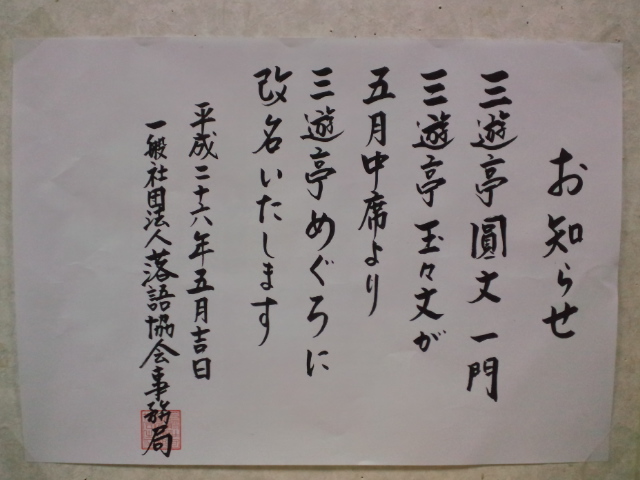 お知らせ
三遊亭圓丈一門
三遊亭玉々丈が
五月中席より
三遊亭めぐろに
改名いたします
平成二十六年五月吉日
一般社団法人落語協会事務局